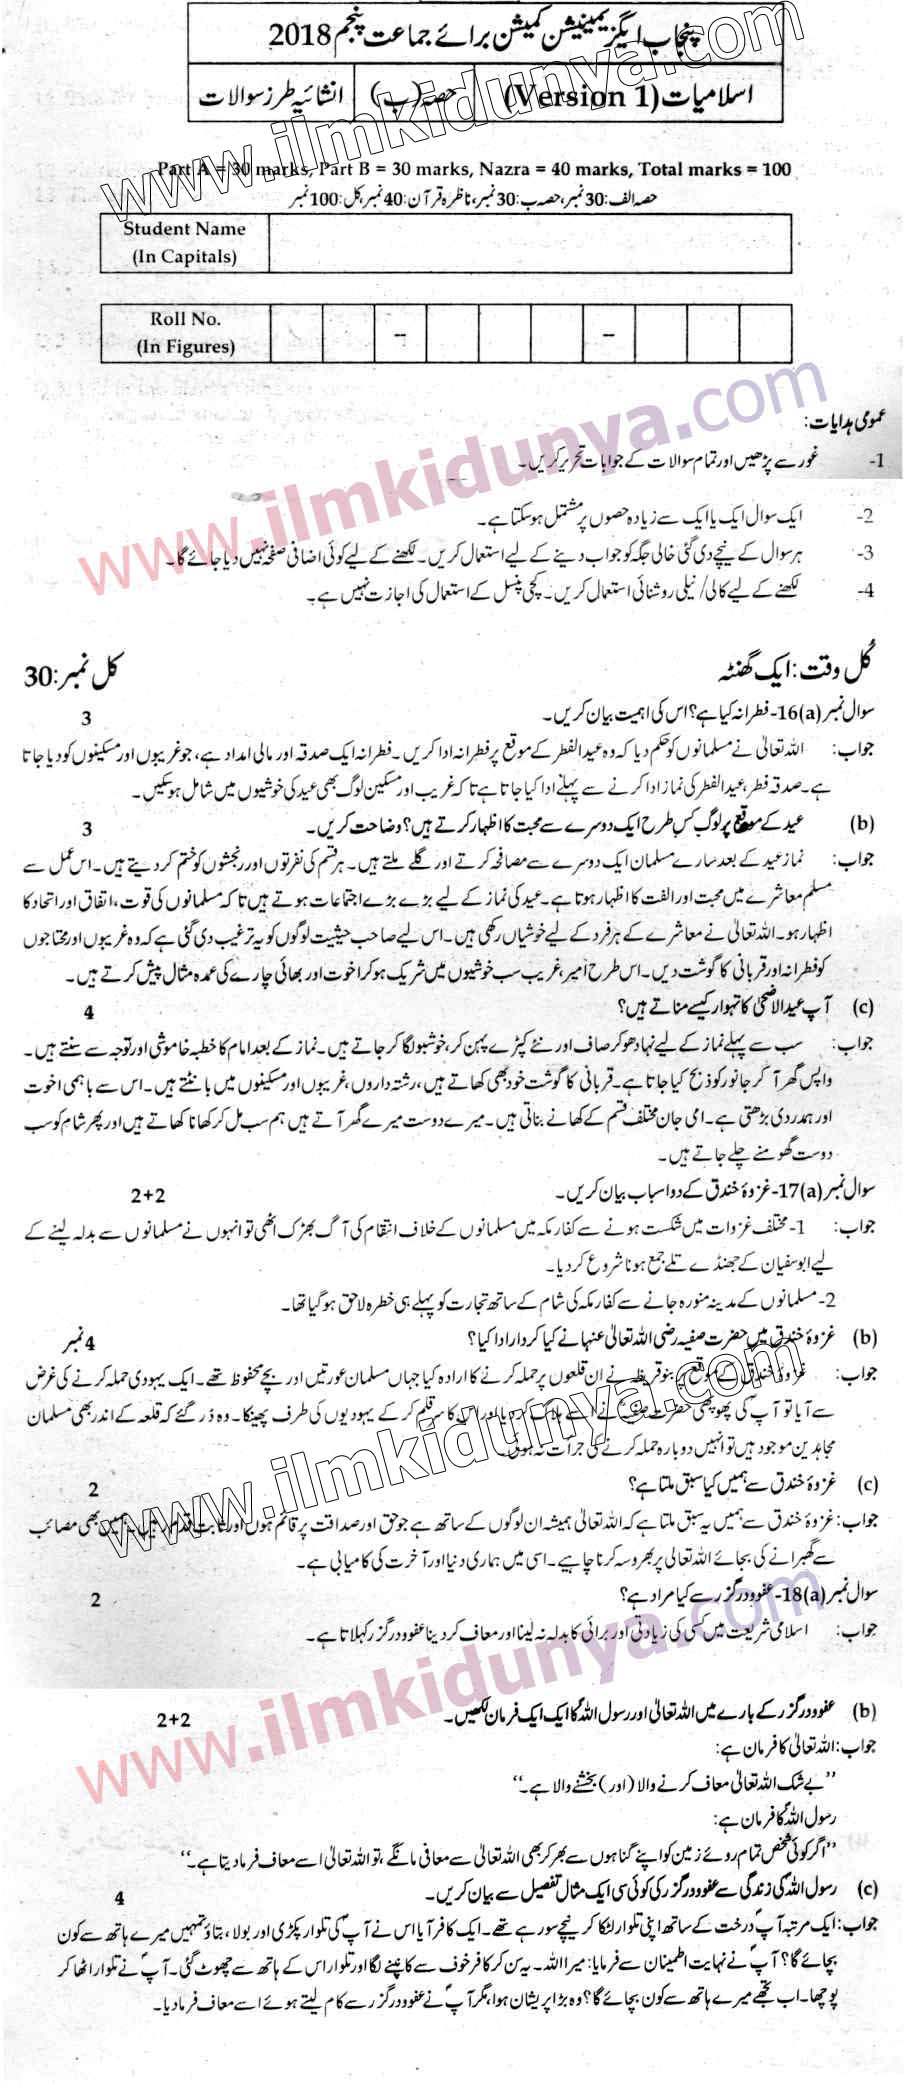 پنجاب ایگزیمینیشن کمیشن برائے جماعت پنجم 2018
اسلامیات (Version 1) حصہ (ب) انشائیہ طرز سوالات
Part A = 30 marks, Part B = 30 marks, Nazra = 40 marks, Total marks = 100
حصہ الف: 30 نمبر، حصہ ب: 30 نمبر، ناظرہ قرآن: 40 نمبر، کل: 100 نمبر
Student Name
(In Capitals)
Roll No.
(In Figures)
– –
عمومی ہدایات:
1- غور سے پڑھیں اور تمام سوالات کے جوابات تحریر کریں۔
2- ایک سوال ایک یا ایک سے زیادہ حصوں پر مشتمل ہوسکتا ہے۔
3- ہر سوال کے نیچے دی گئی خالی جگہ کو جواب دینے کے لیے استعمال کریں۔ لکھنے کے لیے کوئی اضافی صفحہ نہیں دیا جائے گا۔
4- لکھنے کے لیے کالی/نیلی روشنائی استعمال کریں۔ کچی پنسل کے استعمال کی اجازت نہیں ہے۔
کل وقت: ایک گھنٹہ کل نمبر: 30
سوال نمبر 16(a)- فطرانہ کیا ہے؟ اس کی اہمیت بیان کریں۔ 3
جواب: اللہ تعالیٰ نے مسلمانوں کو حکم دیا کہ وہ عید الفطر کے موقع پر فطرانہ ادا کریں۔ فطرانہ ایک صدقہ اور مالی امداد ہے، جو غریبوں اور مسکینوں کو دیا جاتا
ہے۔ صدقہ فطر، عید الفطر کی نماز ادا کرنے سے پہلے ادا کیا جاتا ہے تاکہ غریب اور مسکین لوگ بھی عید کی خوشیوں میں شامل ہوسکیں۔
(b) عید کے موقع پر لوگ کس طرح ایک دوسرے سے محبت کا اظہار کرتے ہیں؟ وضاحت کریں۔ 3
جواب: نماز عید کے بعد سارے مسلمان ایک دوسرے سے مصافحہ کرتے اور گلے ملتے ہیں۔ ہر قسم کی نفرتوں اور رنجشوں کو ختم کر دیتے ہیں۔ اس عمل سے
مسلم معاشرے میں محبت اور الفت کا اظہار ہوتا ہے۔ عید کی نماز کے لیے بڑے بڑے اجتماعات ہوتے ہیں تاکہ مسلمانوں کی قوت، اتفاق اور اتحاد کا
اظہار ہو۔ اللہ تعالیٰ نے معاشرے کے ہر فرد کے لیے خوشیاں رکھی ہیں۔ اس لیے صاحب حیثیت لوگوں کو یہ ترغیب دی گئی ہے کہ وہ غریبوں اور محتاجوں
کو فطرانہ اور قربانی کا گوشت دیں۔ اس طرح امیر، غریب سب خوشیوں میں شریک ہو کر اخوت اور بھائی چارے کی عمدہ مثال پیش کرتے ہیں۔
(c) آپ عید الاضحیٰ کا تہوار کیسے مناتے ہیں؟ 4
جواب: سب سے پہلے نماز کے لیے نہا دھو کر صاف اور نئے کپڑے پہن کر، خوشبو لگا کر جاتے ہیں۔ نماز کے بعد امام کا خطبہ خاموشی اور توجہ سے سنتے ہیں۔
واپس گھر آ کر جانور کو ذبح کیا جاتا ہے۔ قربانی کا گوشت خود بھی کھاتے ہیں، رشتہ داروں، غریبوں اور مسکینوں میں بانٹتے ہیں۔ اس سے باہمی اخوت
اور ہمدردی بڑھتی ہے۔ امی جان مختلف قسم کے کھانے بناتی ہیں۔ میرے دوست میرے گھر آتے ہیں ہم سب مل کر کھانا کھاتے ہیں اور پھر شام کو سب
دوست گھومنے چلے جاتے ہیں۔
سوال نمبر 17(a)- غزوۂ خندق کے دو اسباب بیان کریں۔ 2+2
جواب: 1- مختلف غزوات میں شکست ہونے سے کفار مکہ میں مسلمانوں کے خلاف انتقام کی آگ بھڑک اٹھی تو انہوں نے مسلمانوں سے بدلہ لینے کے
لیے ابوسفیان کے جھنڈے تلے جمع ہونا شروع کر دیا۔
2- مسلمانوں کے مدینہ منورہ جانے سے کفار مکہ کی شام کے ساتھ تجارت کو پہلے ہی خطرہ لاحق ہو گیا تھا۔
(b) غزوۂ خندق میں حضرت صفیہ رضی اللہ تعالیٰ عنہا نے کیا کردار ادا کیا؟ 4 نمبر
جواب: غزوۂ خندق کے موقع پر بنوقریظہ نے ان قلعوں پر حملہ کرنے کا ارادہ کیا جہاں مسلمان عورتیں اور بچے محفوظ تھے۔ ایک یہودی حملہ کرنے کی غرض
سے آیا تو آپؐ کی پھوپھی حضرت صفیہؓ نے اسے ہلاک کر دیا اور اس کا سر قلم کر کے یہودیوں کی طرف پھینکا۔ وہ ڈر گئے کہ قلعہ کے اندر بھی مسلمان
مجاہدین موجود ہیں تو انہیں دوبارہ حملہ کرنے کی جرأت نہ ہوئی۔
(c) غزوۂ خندق سے ہمیں کیا سبق ملتا ہے؟ 2
جواب: غزوۂ خندق سے ہمیں یہ سبق ملتا ہے کہ اللہ تعالیٰ ہمیشہ ان لوگوں کے ساتھ ہے جو حق اور صداقت پر قائم ہوں اور ثابت قدم رہیں۔ ہمیں بھی مصائب
سے گھبرانے کی بجائے اللہ تعالیٰ پر بھروسہ کرنا چاہیے۔ اسی میں ہماری دنیا اور آخرت کی کامیابی ہے۔
سوال نمبر 18(a)- عفوودرگزر سے کیا مراد ہے؟ 2
جواب: اسلامی شریعت میں کسی کی زیادتی اور برائی کا بدلہ نہ لینا اور معاف کر دینا عفوودرگزر کہلاتا ہے۔
(b) عفوودرگزر کے بارے میں اللہ تعالیٰ اور رسول اللہؐ کا ایک ایک فرمان لکھیں۔ 2+2
جواب: اللہ تعالیٰ کا فرمان ہے:
”بے شک اللہ تعالیٰ معاف کرنے والا (اور) بخشنے والا ہے۔“
رسول اللہؐ کا فرمان ہے:
”اگر کوئی شخص تمام روئے زمین کو اپنے گناہوں سے بھر کر بھی اللہ تعالیٰ سے معافی مانگے، تو اللہ تعالیٰ اسے معاف فرما دیتا ہے۔“
(c) رسول اللہؐ کی زندگی سے عفوودرگزر کی کوئی سی ایک مثال تفصیل سے بیان کریں۔ 4
جواب: ایک مرتبہ آپؐ درخت کے ساتھ اپنی تلوار لٹکا کر نیچے سو رہے تھے۔ ایک کافر آیا اس نے آپؐ کی تلوار پکڑی اور بولا، بتاؤ تمہیں میرے ہاتھ سے کون
بچائے گا؟ آپؐ نے نہایت اطمینان سے فرمایا: میرا اللہ۔ یہ سن کر کافر خوف سے کانپنے لگا اور تلوار اس کے ہاتھ سے چھوٹ گئی۔ آپؐ نے تلوار اٹھا کر
پوچھا۔ اب تجھے میرے ہاتھ سے کون بچائے گا؟ وہ بڑا پریشان ہوا، مگر آپؐ نے عفوودرگزر سے کام لیتے ہوئے اسے معاف فرما دیا۔
www.ilmkidunya.com
www.ilmkidunya.com
www.ilmkidunya.com
www.ilmkidunya.com